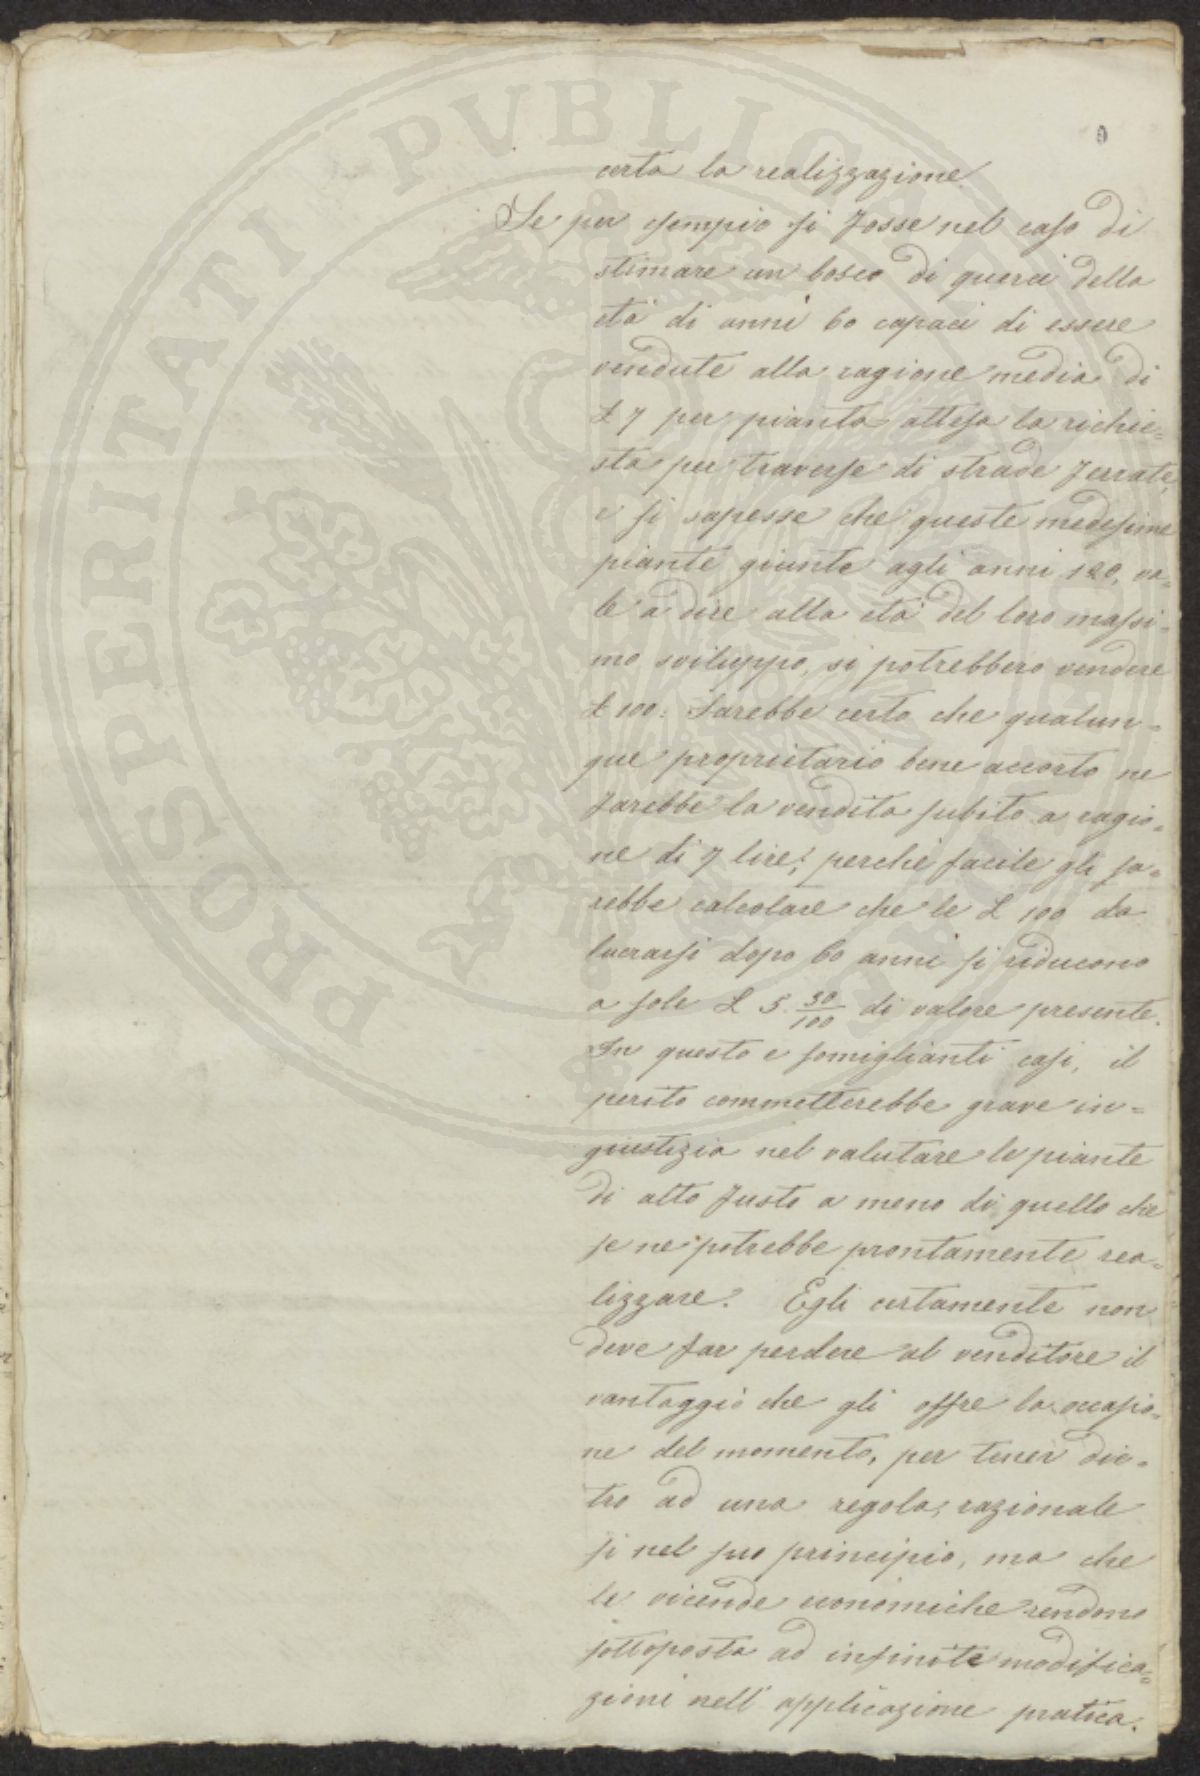 PROSPERITATI PVBLICAE
certa la realizzazione.
Se per esempio si fosse nel caso di
stimare un bosco di querci della
età di anni 60 capaci di essere
vendute alla ragione media di
£ 7 per pianta attesa la richie=
sta per traverse di strade ferrate,
e si sapesse che queste medesime
piante giunte agli anni 120, va=
le a dire alla età del loro massi=
mo sviluppo, si potrebbero vendere
£ 100: Sarebbe certo che qualun=
que proprietario bene accorto ne
farebbe la vendita subito a ragio=
ne di 7 lire; perché facile gli sa=
rebbe calcolare che le £ 100 da
lucrarsi dopo 60 anni si riducono
a sole £ 5. 30/100 di valore presente.
In questo e somiglianti casi, il
perito commetterebbe grave in=
giustizia nel valutare le piante
di alto fusto a meno di quello che
se ne potrebbe prontamente rea=
lizzare. Egli certamente non
deve far perdere al venditore il
vantaggio che gli offre la occasio=
ne del momento, per tener die=
tro ad una regola, razionale
sì nel suo principio, ma che
le vicende economiche rendono
sottoposta ad infinite modifica=
zioni nell'applicazione pratica.